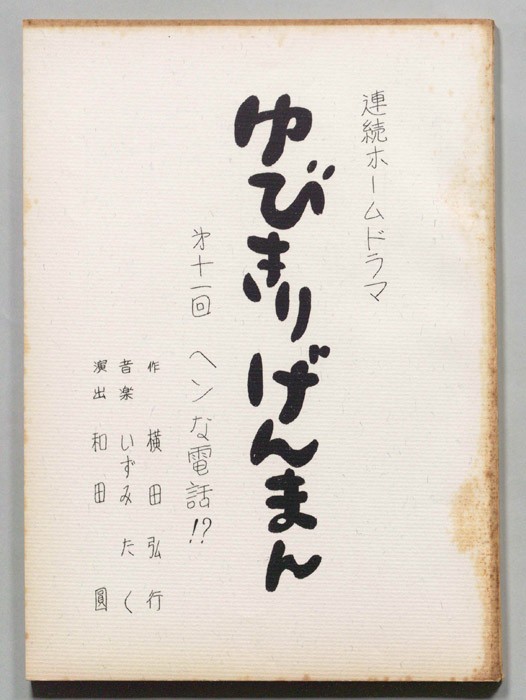 連続ホームドラマ
ゆびきりげんまん
㐧十一回 ヘンな電話!?
作 横田弘行
音楽 いずみたく
演出 和田 圓